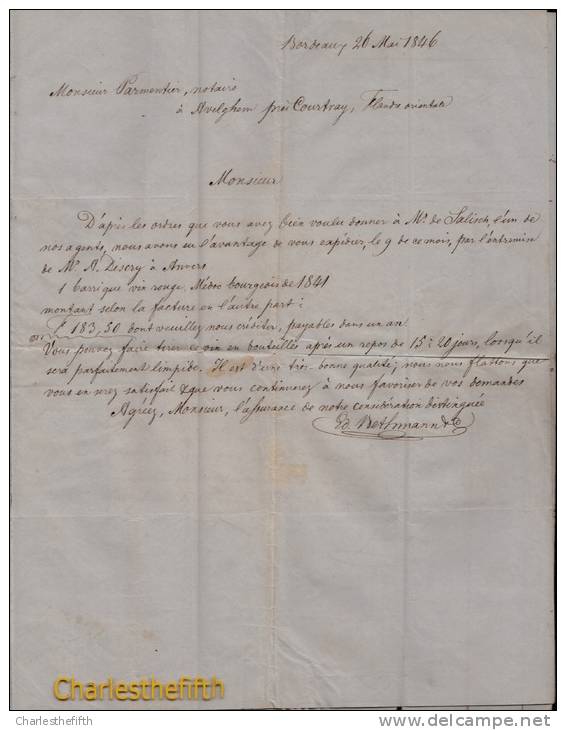 Bordeaux 26 Mai 1846
Monsieur Parmentier, notaire
à Avelghem près Courtray, Flandre orientale
Monsieur
D'après les ordres que vous avez bien voulu donner à Mr. de Salisch, l'un de
nos agents, nous avons eu l'avantage de vous expédier, le 9 de ce mois, par l'entremise
de Mr. A. à Anvers
1 barrique vin rouge Médoc bourgeois de 1841
montant selon la facture en l'autre part:
f. 183,50 dont veuillez nous créditer, payables dans un an.
Vous pouvez faire tirer ce vin en bouteilles après un repos de 15 à 20 jours, lorsqu'il
sera parfaitement limpide. Il est d'une très-bonne qualité; nous nous flattons que
vous en serez satisfait & que vous continuerez à nous favoriser de vos demandes
Agréez, Monsieur, l'assurance de notre considération distinguée
Ed. Bethmann & Co
Charlesthefifth
Charlesthefifth
delcampe.net